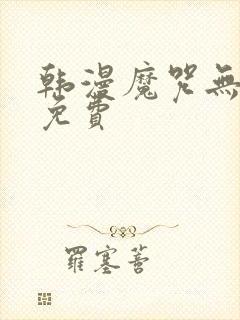 韩漫魔咒無
免費
羅塞菩